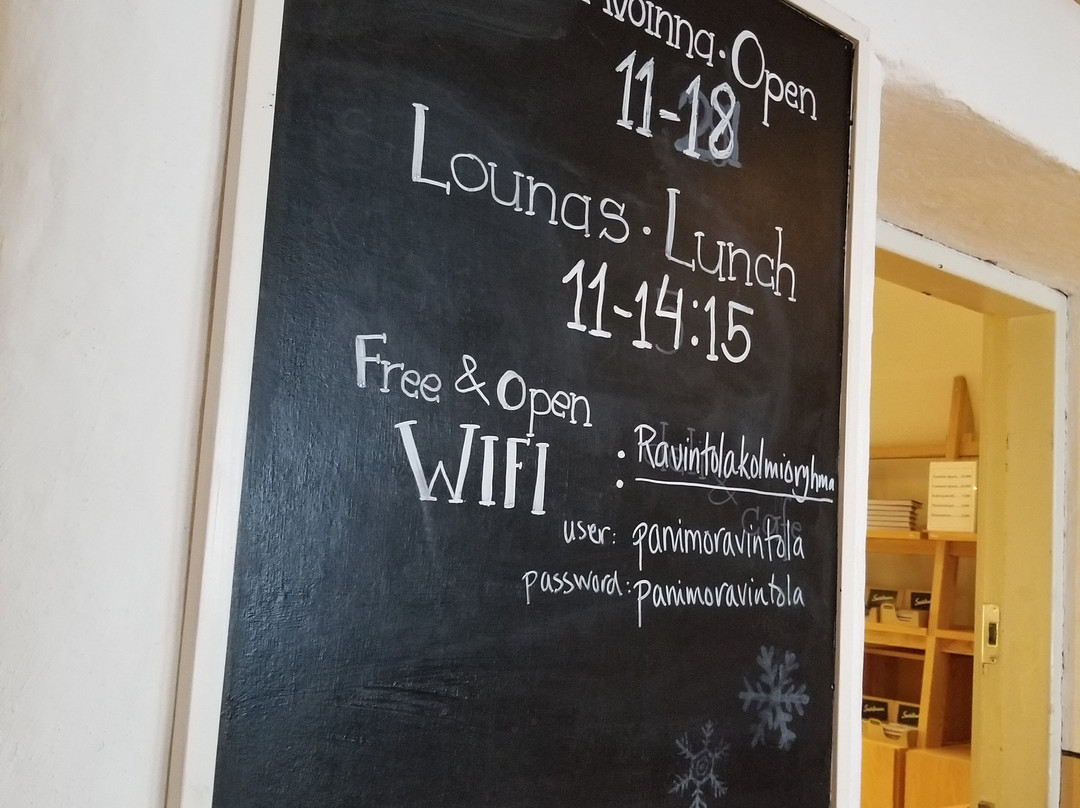 Avoinna · Open
11-18
Lounas · Lunch
11-14:15
Free & Open
WIFI : Ravintolakolmioryhma
user: panimoravintola
password: panimoravintola